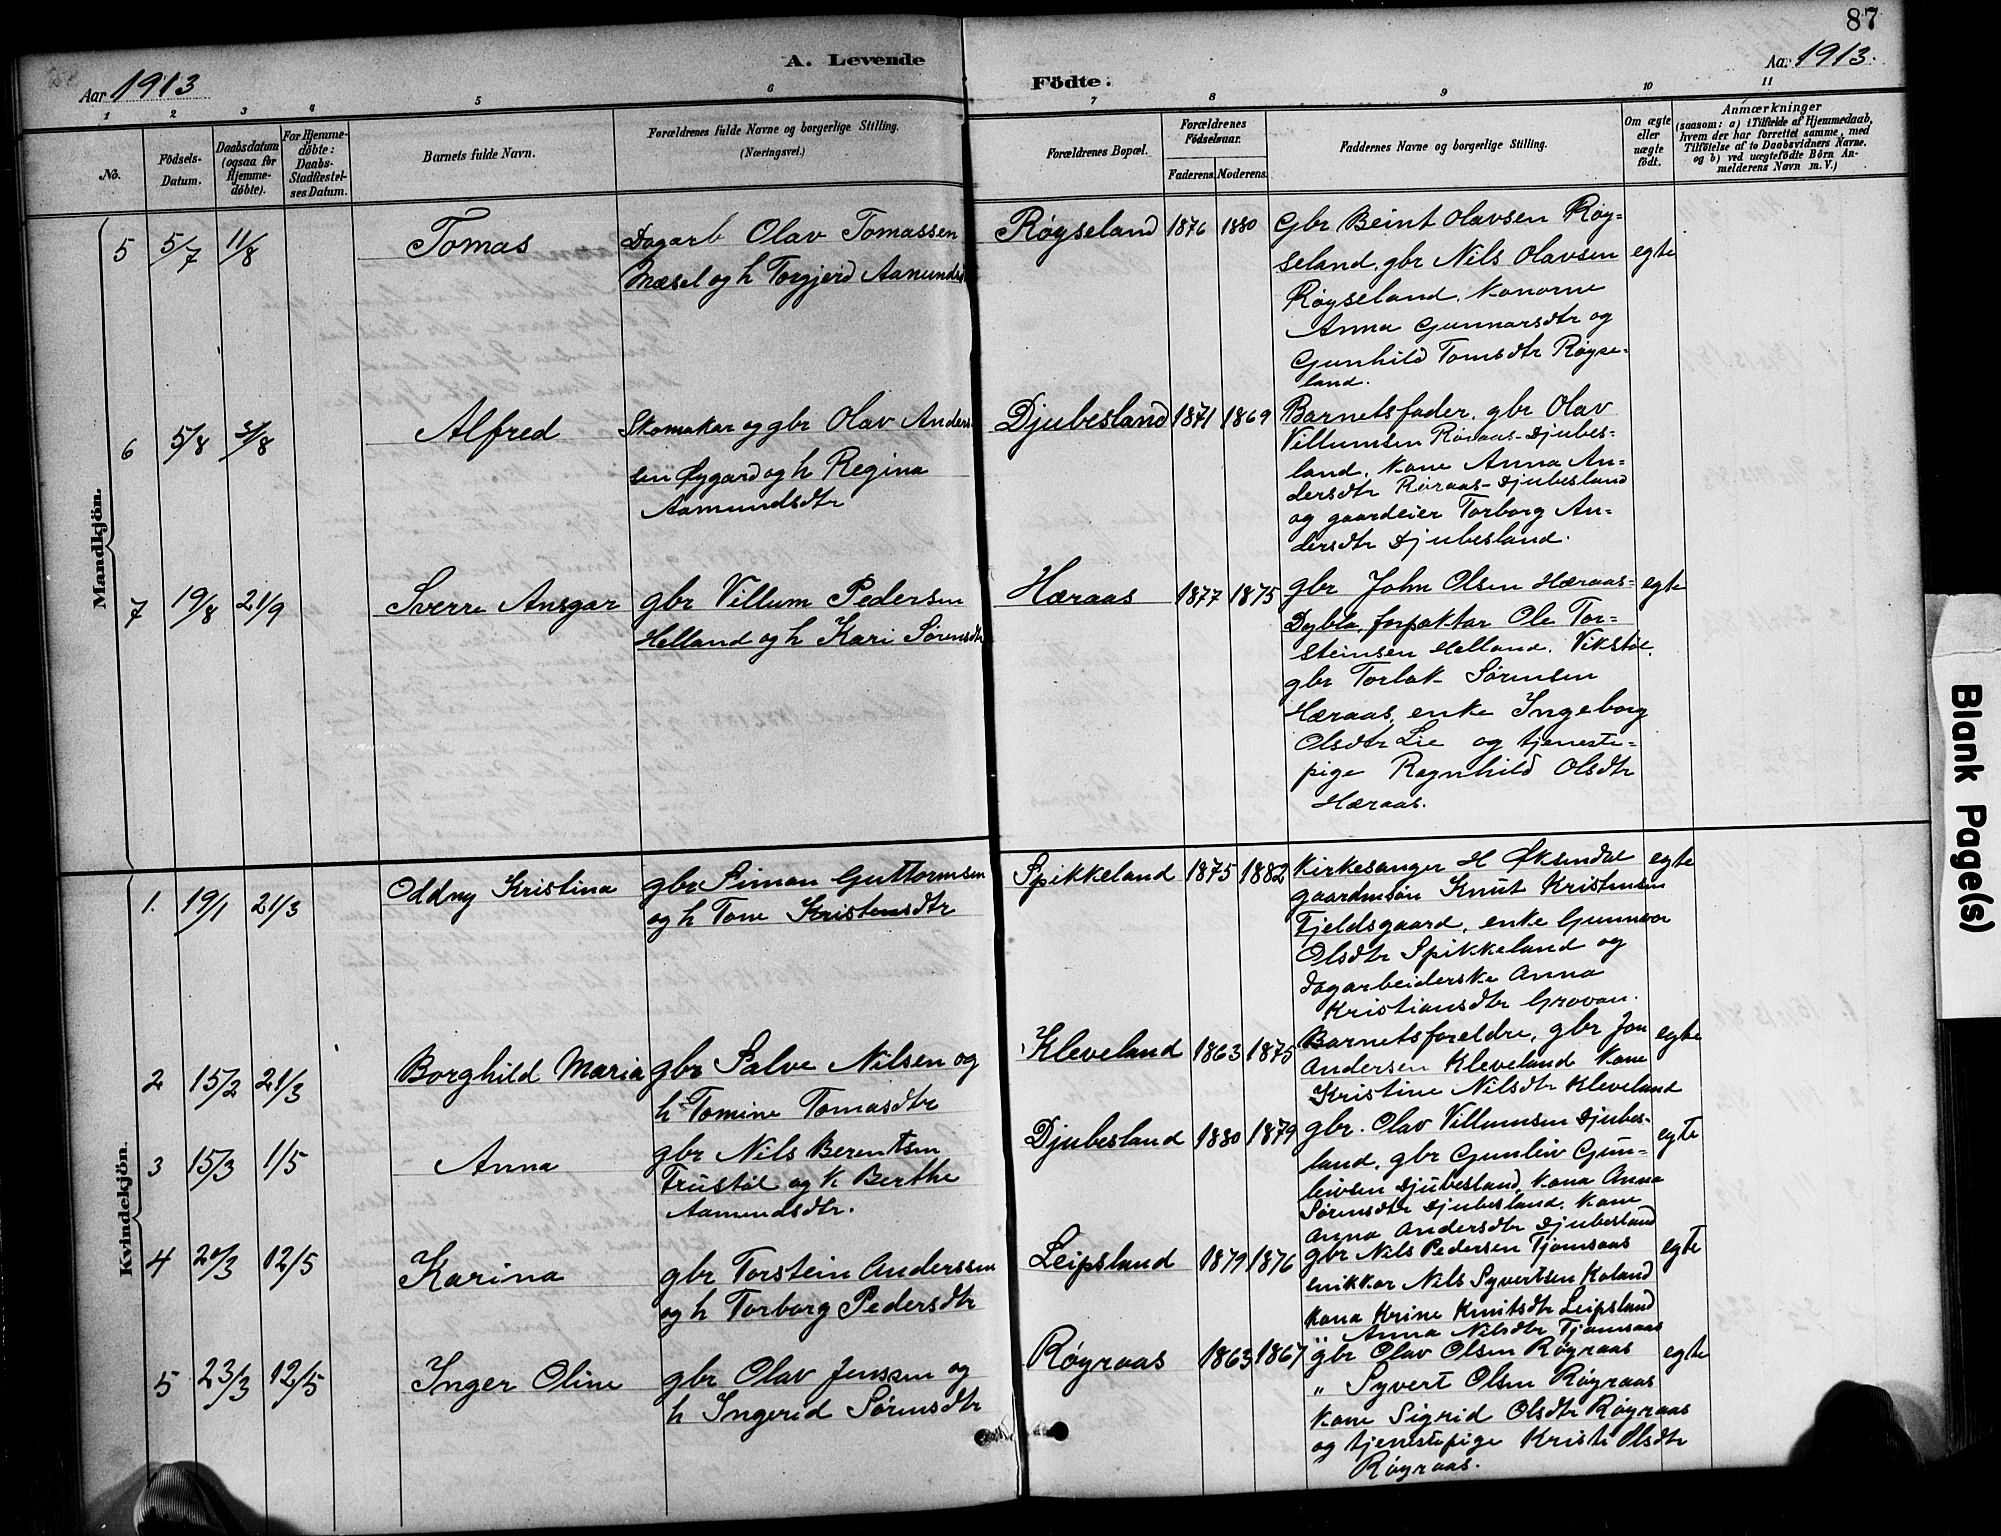 87
Aar 1913
A. Levende
Födte.
Aar 1913.
1 2 3 4 5 6 7 8 9 10 11
No.
Födsels-
Datum.
Daabsdatum
(ogsaa for
Hjemme-
döbte).
For Hjemme-
döbte:
Daabs-
Stadfæstel-
ses Datum.
Barnets fulde Navn.
Forældrenes fulde Navne og borgerlige Stilling.
(Næringsvei.)
Forældrenes Bopæl.
Forældrenes
Födselsaar.
Faderens. Moderens.
Faddernes Navne og borgerlige Stilling.
Om ægte
eller
uægte
født.
Anmærkninger
(saasom: a) i Tilfælde af Hjemmedaab,
hvem der har forrettet samme, med
Tilföielse af to Daabsvidners Navne.
og b) ved uægtefödte Börn An-
melderens Navn m.V.)
Mandkjön.
5 5/7 11/8 Tomas
Dagarb Olav Tomassen
Mæsel og h Torgjerd Aamundsd
Røyseland 1876 1880
Gbr Beint Olavsen Røy=
seland, gbr Nils Olavsen
Røyseland. Konorne
Anna Gunnarsdtr og
Gunhild Tomsdtr Røyse-
land.
egte
6 5/8 31/8 Alfred
Skomaker og gbr Olav Anders-
sen Øygard og h Regina
Aamundsdtr
Djubesland 1871 1869
Barnetsfader, gbr Olav
Villumsen Røraas-Djubes-
land, Kone Anna An=
dersdtr Røraas-Djubesland
og gaardeier Torborg An=
dersdtr Djubesland.
7 19/8 21/9 Sverre Ansgar
gbr Villum Pedersen
Helland og h Kari Sørensdtr
Hæraas 1877 1875
gbr John Olsen Hæraas-
Dybla, forpaktar Ole Tor=
steinsen Helland. Vikstøl.
gbr Torlak Sørensen
Hæraas, enke Ingeborg
Olsdtr Lie og tjeneste=
pige Ragnhild Olsdtr
Hæraas.
egte
Kvindekjön.
1. 19/1 21/3 Oddny Kristina
gbr Simon Guttormsen
og h Tone Kristensdtr
Spikkeland 1875 1882
Kirkesanger H Øksendal
gaardmsøn Knut Kristensen
Fjeldsgaard, enke Gunnvor
Olsdtr Spikkeland og
dagarbeiderske Anna
Kristiansdtr Grovan.
egte
2 15/2 21/3 Borghild Maria
gbr Salve Nilsen og
h Tomine Tomasdtr
Kleveland 1863 1875
Barnetsforeldre, gbr Jon
Andersen Kleveland Kone
Kristine Nilsdtr Kleveland
egte
3 15/3 1/5 Anna
gbr Nils Berentsen
Trustøl og K Berthe
Aamundsdtr.
Djubesland 1880 1879
gbr. Olav Villumsen Djubes-
land, gbr Gunleiv Gun-
leivsen Djubesland, Kona Anna
Sørensdtr Djubesland. Kone
Anna Andersdtr Djubesland
egte
4 20/3 12/5 Karina
gbr Torstein Anderssen
og h Torborg Pedersdtr
Leipsland 1879 1876
gbr Nils Pedersen Tjomsaas
snikkar Nils Syvertsen Koland
Kona Krine Knutsdtr Leipsland
" Anna Nilsdtr Tjomsaas
egte
5 23/3 12/5 Inger Oline
gbr Olav Jenssen og
h Ingerid Sørensdtr
Røyraas 1863 1867
gbr Olav Olsen Røyraas
" Syvert Olsen Røyraas
Kone Sigrid Olsdtr Røyraas
og tjenestepige Kristi Olsdtr
Røyraas.
egte
Blank Page(s)